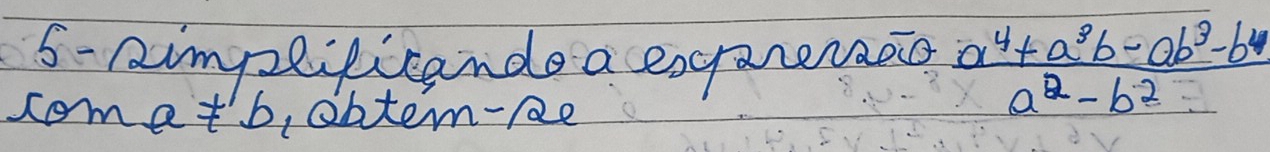 5-simplificando a expressão a⁴+a³b-ab³-b⁴/a²-b²
com a ≠ b, obtém-se